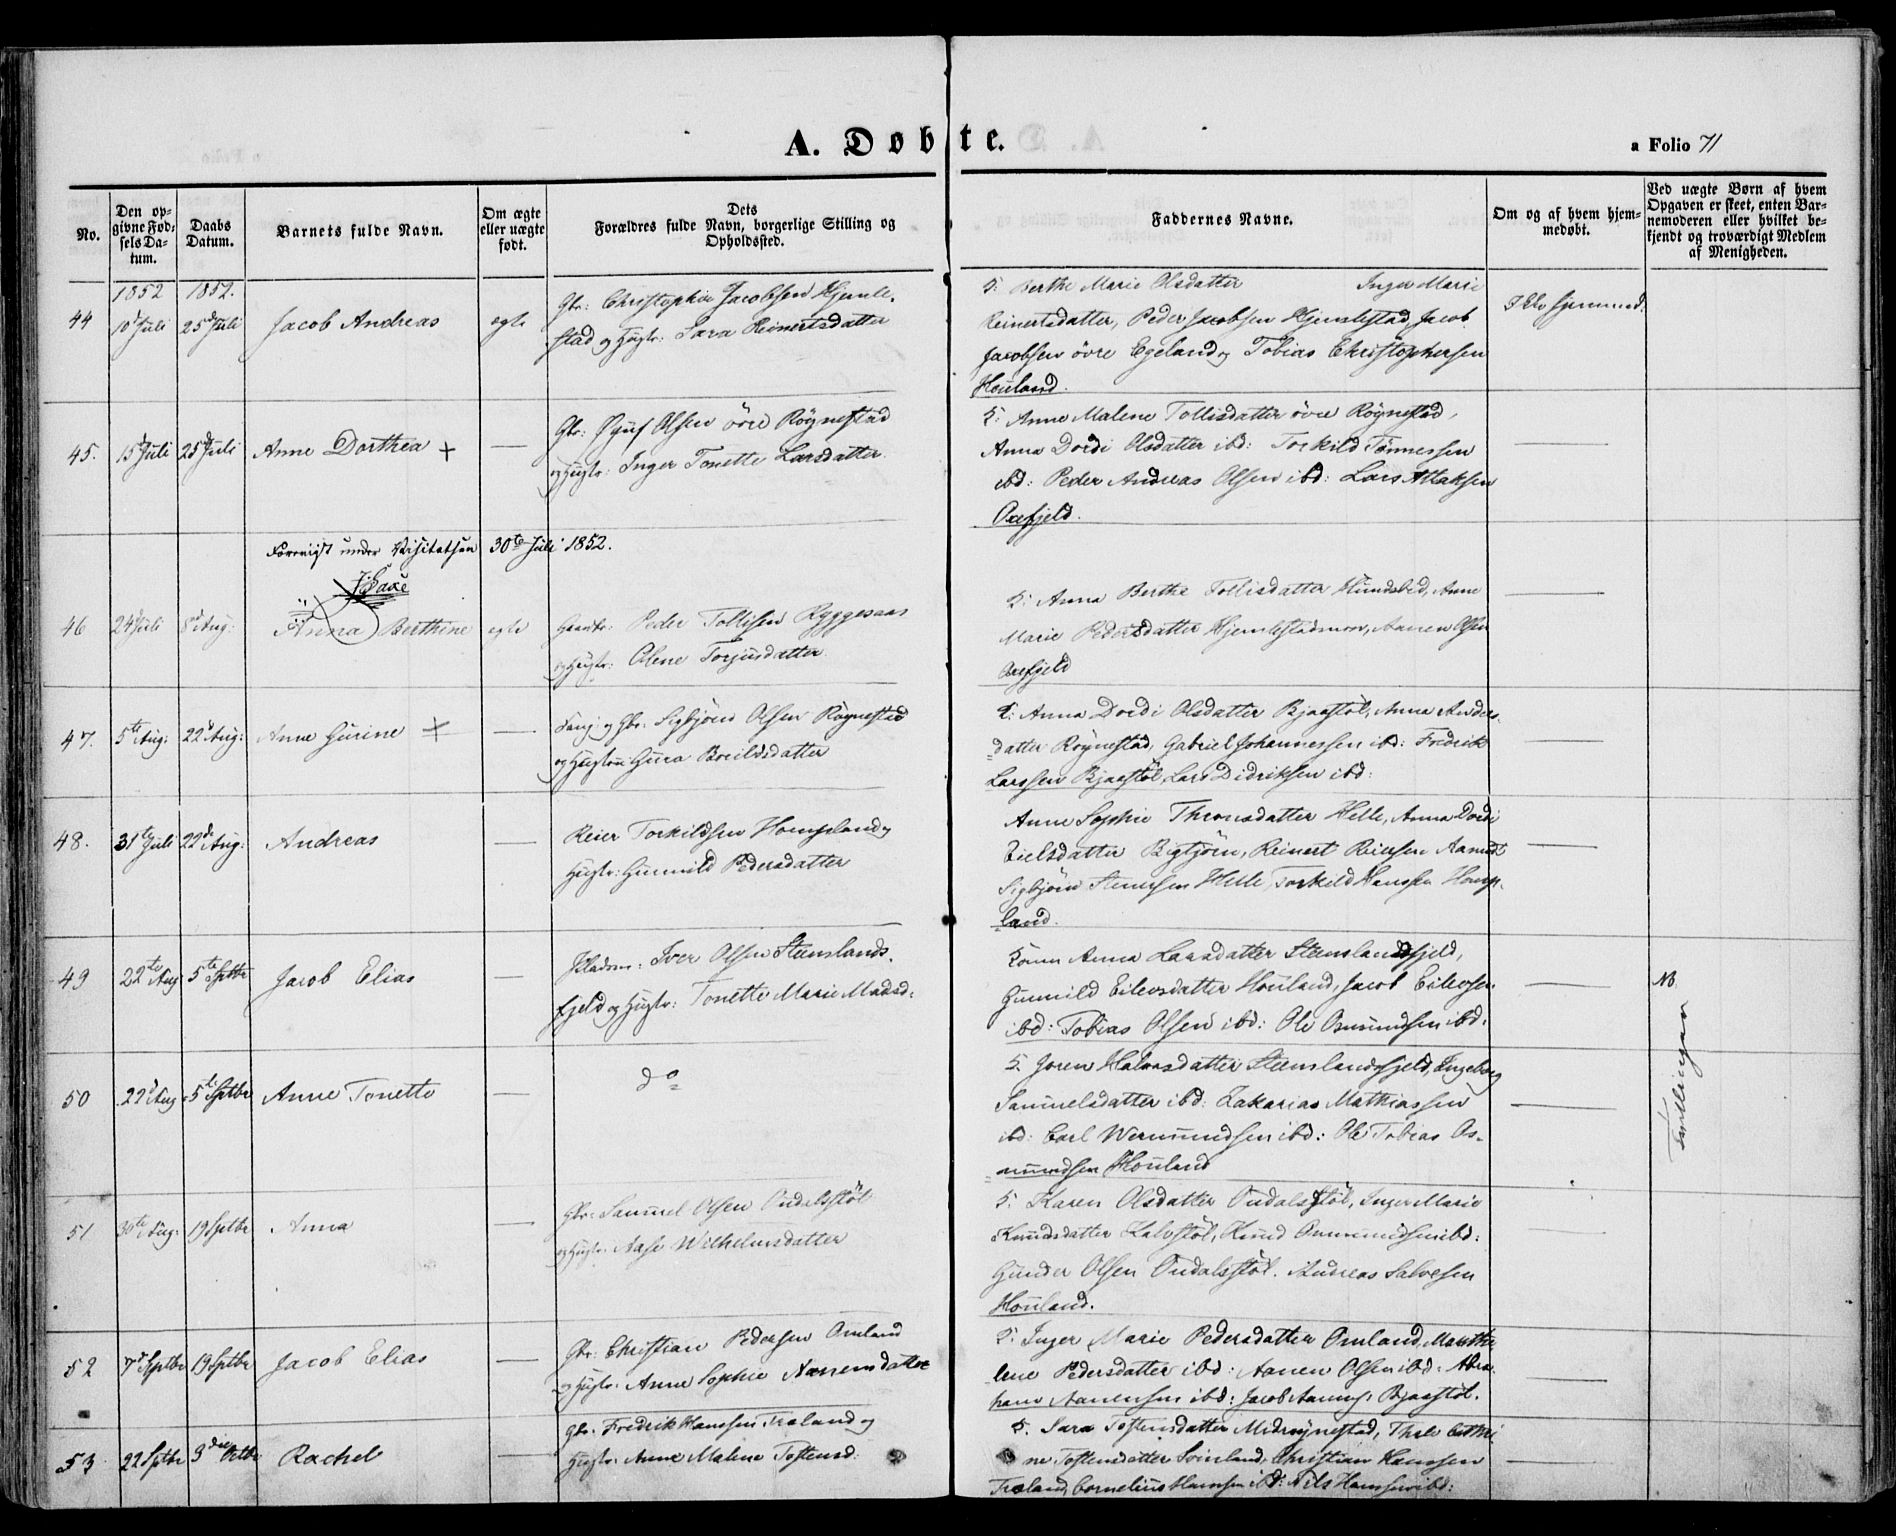 A. Døbte.
a Folio 71
No.
Den opgivne Fødselsdatum.
Daabs Datum.
Barnets fulde Navn.
Om ægte eller uægte født.
Dets Forældres fulde Navn, borgerlige Stilling og Opholdssted.
Faddernes Navne.
Om og af hvem hjemmedøbt.
Ved uægte Børn af hvem Opgaven er skeet, enten Barnemoderen eller hvilket bekjendt og troværdigt Medlem af Menigheden.
1852 1852.
44 10 Juli 25 Juli Jacob Andreas egte
Gbr: Christopher Jacobsen Hjemle-
stad og Hustr: Sara Reinertsdatter
F: Berthe Marie Olsdatter Inger Marie
Reinertsdatter, Peder Jacobsen Hjemlestad, Jacob
Jacobsen övre Egeland og Tobias Christophersen
Houland.
45. 15 Juli 25 Juli Anne Dorthea +
Gbr: Olsen övre Röynestad
og Hustr: Inger Tonette Larsdatter.
F: Anne Malene Tollisdatter övre Röynestad,
Anna Dordi Olsdatter ibd: Torkild Tönnessen
ibd: Peder Andreas Olsen ibd: Lars Aslaksen
Oxefjeld.
Foreviist under Visitatsen 30te Juli 1852.
46 24 Juli 8 Aug: Anna Berthine egte
Peder Tollisen Ryggesaas
og Hustr: Olene Torjusdatter
F: Anna Berthe Tollisdatter Hundsbed, Anne
Marie Pedersdatter Hjemlestadmoen, Aanen Olsen
Oxefjeld
47. 5te Aug: 22 Aug: Anne Gurine +
og Gbr: Sigbjörn Olsen Röynestad
og Hustru Gura Boieldsdatter
F: Anna Dordi Olsdatter Bjaastöl, Anna Anders-
datter Röynestad, Gabriel Johannessen ibd: Fredrik
Larssen Bjaastöl, Lars Didriksen ibd:
48. 31te Juli 22de Aug: Andreas
Reier Torkildsen Hompland og
Hustr: Gunnild Pedersdatter
Anne Sophie Thronsdatter Helle, Anna Dordi
Eielsdatter Bigtjörn, Reinert Reiersen
Sigbjörn Helle, Torkild Hanssen Homp-
land.
49 22te Aug 5te Sptbr Jacob Elias
Iver Olsen Steenslands-
fjeld og Hustr: Tonette Marie Madsd:
Anna Larsdatter Steenslandsfjeld,
Gunnild Eilevsdatter Houland, Jacob Eilevsen
ibd: Tobias Olsen ibd: Ole Osmundsen ibd:
NB.
Tvillinger
50 22 Aug 5te Sptbr Anne Tonette
do
F. Joren Halvorsdatter Steenslandsfjeld, Ingeborg
Samuelsdatter ibd: Zakarias Mathiassen
ibd: Carl Wermundsen ibd: Ole Tobias Os-
mundsen Houland
51 30te Aug: 19 Sptbr Anna
Gbr: Samuel Olsen Oudalsstöl
og Hustr: Aase Wilhelmsdatter
F. Karen Olsdatter Oudalsstöl, Inger Marie
Knudsdatter Kalvstöl, Knud Osmundsen ibd:
Gunder Olsen Oudalsstöl. Andreas Salvesen
Houland.
52 7 Sptbr 19 Sptbr Jacob Elias
Gbr: Christian Pedersen Omland
og Hustr: Anne Sophie Aanensdatter
F: Inger Marie Pedersdatter Omland, Marthe
lene Pedersdatter ibd: Aanen Olsen ibd: Abra-
ham Aanensen ibd: Jacob Bjaastöl.
53 22 Sptbr 3die Octbr Rachel
Gbr. Fredrik Hanssen Træland og
Hustr: Anne Malene Tostensd:
F. Sara Tostensdatter Midröynestad, Thale Cathri
ne Tostensdatter Svinland, Christian Hanssen
Træland, Cornelius Hanssen ibd: Nils Hanssen ibd: